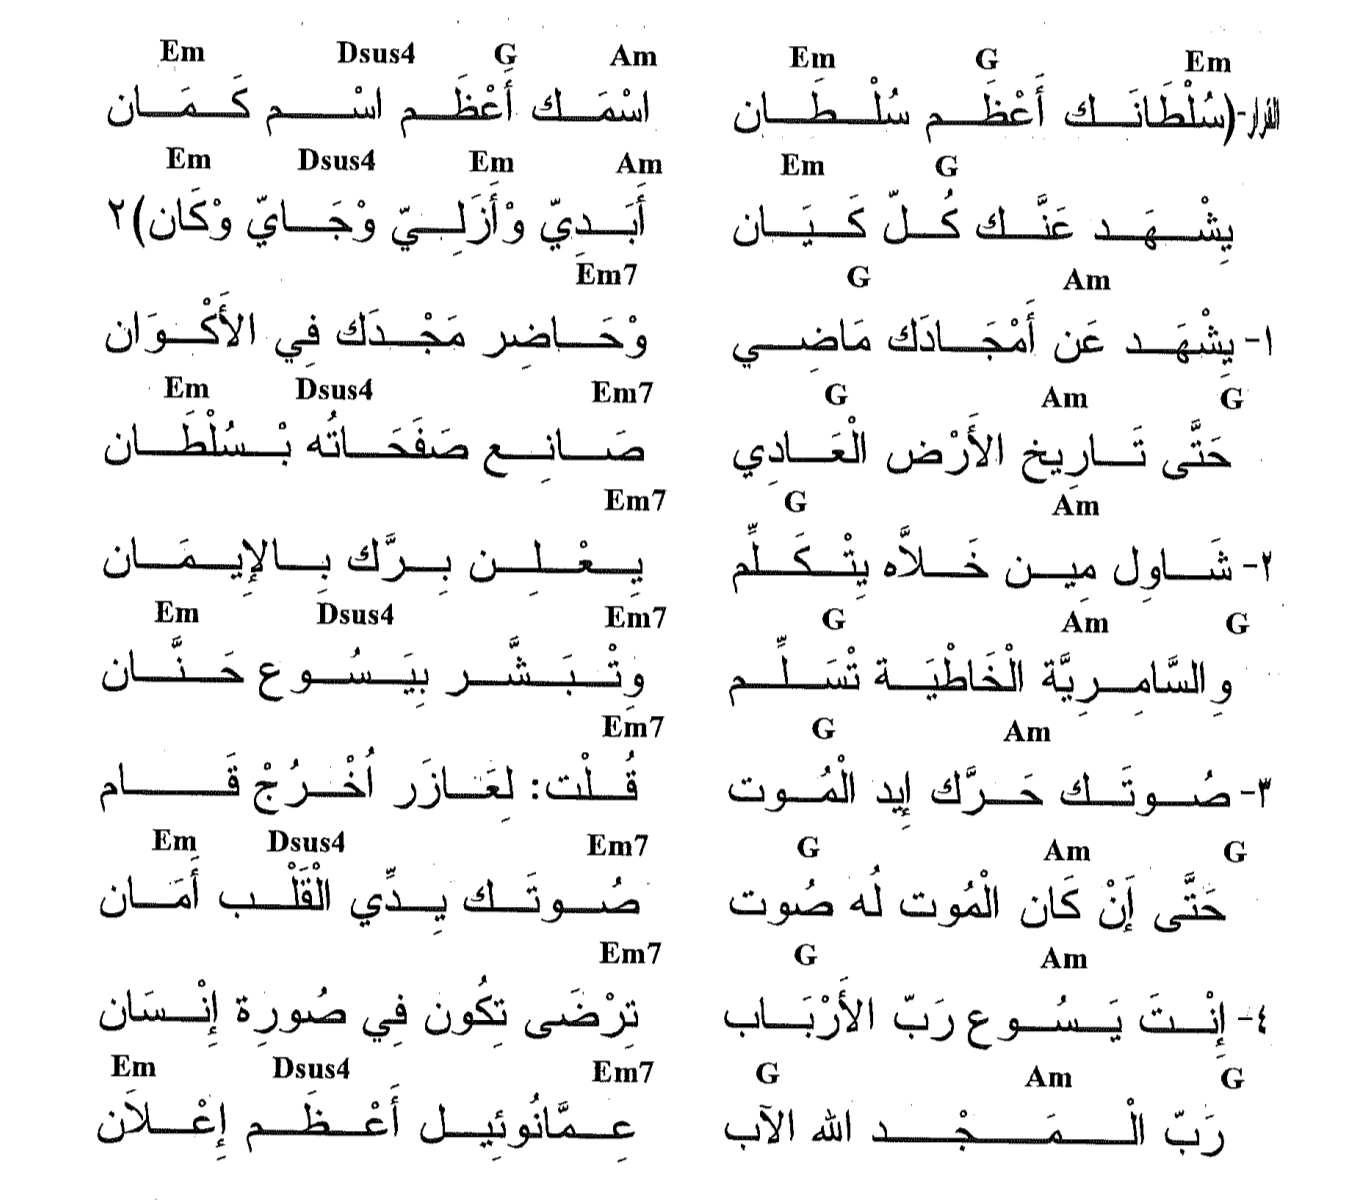 Em G Em Am G Dsus4 Em
القرار-(سُلْطَانَك أَعْظَم سُلْطَان اسْمَك أَعْظَم اسْم كَمَان
G Em Am Em Dsus4 Em
يِشْهَد عَنَّك كُلّ كَيَان أَبَدِيّ وْأَزَلِيّ وْجَايّ وْكَان)٢
Am G Em7
١- يِشْهَد عَن أَمْجَادَك مَاضِي وْحَاضِر مَجْدَك فِي الأَكْوَان
G Am G Em7 Dsus4 Em
حَتَّى تَارِيخ الأَرْض الْعَادِي صَانِع صَفَحَاتُه بْسُلْطَان
Am G Em7
٢- شَاوِل مِين خَلاَّه يِتْكَلِّم يِعْلِن بِرَّك بِالإِيمَان
G Am G Em7 Dsus4 Em
وِالسَّامِرِيَّة الْخَاطْيَة تْسَلِّم وِتْبَشَّر بِيَسُوع حَنَّان
Am G Em7
٣- صُوتَك حَرَّك إِيد الْمُوت قُلْت: لِعَازَر اُخْرُجْ قَام
G Am G Em7 Dsus4 Em
حَتَّى إَنْ كَان الْمُوت لُه صُوت صُوتَك يِدِّي الْقَلْب أَمَان
Am G Em7
٤- إِنْتَ يَسُوع رَبّ الأَرْبَاب تِرْضَى تِكُون فِي صُورِة إِنْسَان
G Am G Em7 Dsus4 Em
رَبّ الْمَجْد الله الآب عِمَّانُوئِيل أَعْظَم إِعْلاَن